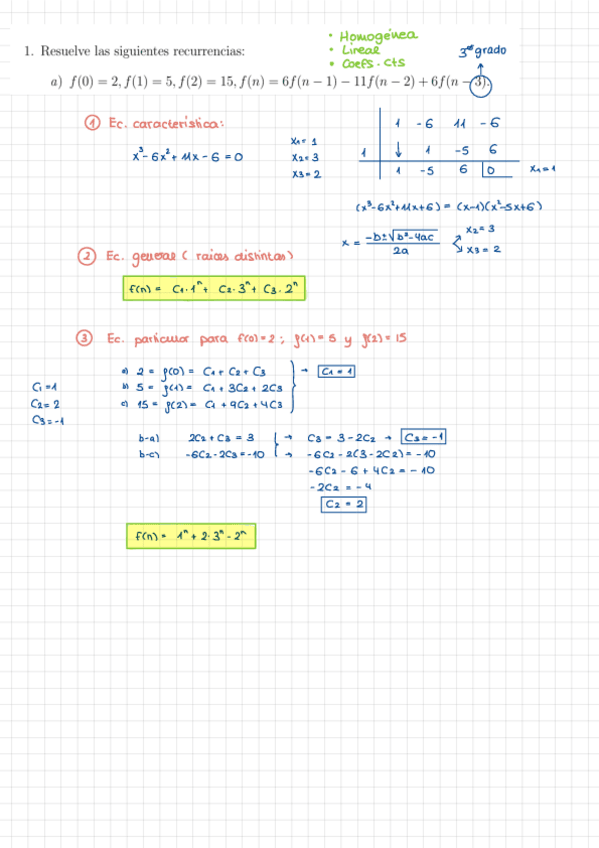 • Homogénea
1. Resuelve las siguientes recurrencias:
• Lineal
• Coefs. cts
3er grado
a) f(0) = 2, f(1) = 5, f(2) = 15, f(n) = 6f(n − 1) − 11f(n − 2) + 6f(n − 3).
① Ec. característica:
x³-6x²+11x-6=0
x1=1
x2=3
x3=2
1 -6 11 -6
1 ↓ 1 -5 6
1 -5 6 0 x1=1
(x³-6x²+11x+6) = (x-1)(x²-5x+6)
x = -b±√b²-4ac / 2a
x2=3
x3=2
② Ec. general (raices distintas)
f(n) = C1·1ⁿ + C2·3ⁿ + C3·2ⁿ
③ Ec. particular para f(0)=2; f(1)=5 y f(2)=15
a) 2 = f(0) = C1+C2+C3 → C1=1
b) 5 = f(1) = C1+3C2+2C3
c) 15 = f(2) = C1+9C2+4C3
C1=1
C2=2
C3=-1
b-a) 2C2+C3=3 → C3=3-2C2 → C3=-1
b-c) -6C2-2C3=-10 → -6C2-2(3-2C2)=-10
-6C2-6+4C2=-10
-2C2=-4
C2=2
f(n) = 1ⁿ+2·3ⁿ-2ⁿ